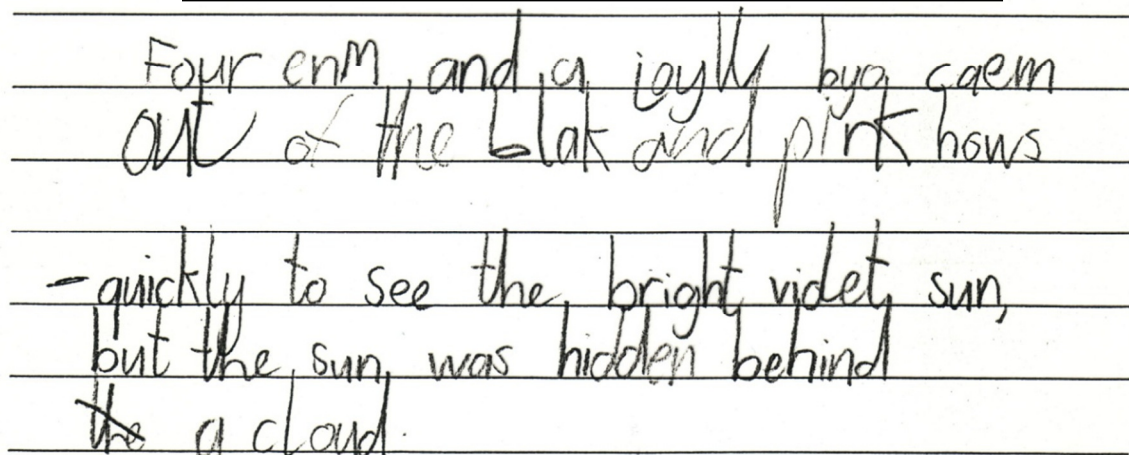 Four enm and a joylly byo caem
out of the blak and pink hows
- quickly to see the bright violet sun,
but the sun was hidden behind
the a cloud.